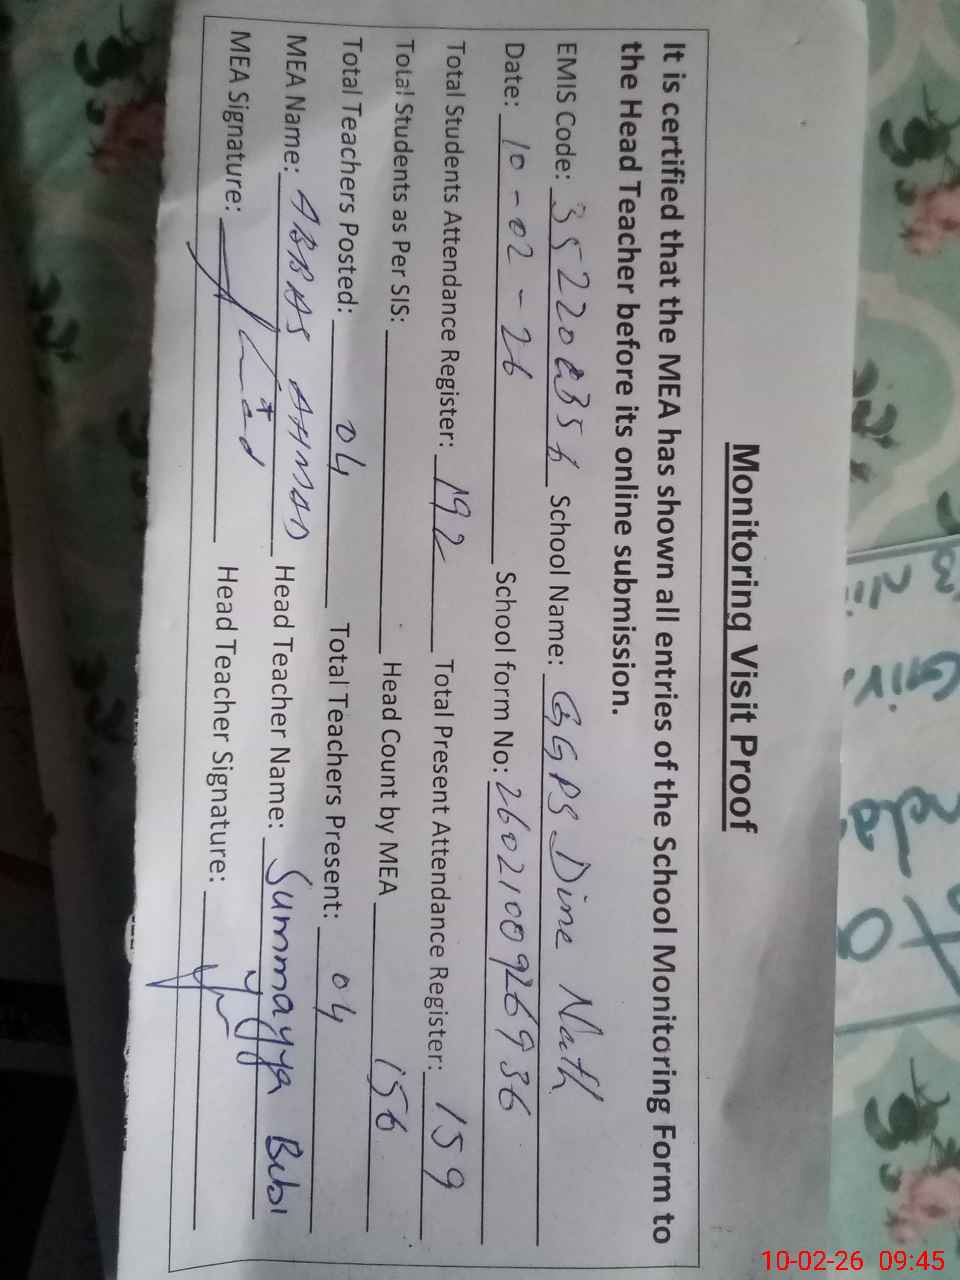 Monitoring Visit Proof
It is certified that the MEA has shown all entries of the School Monitoring Form to
the Head Teacher before its online submission.
EMIS Code: 35220356 School Name: GGPS Dine Nath
Date: 10-02-26 School form No: 26021009269936
Total Students Attendance Register: 192 Total Present Attendance Register: 159
Total Students as Per SIS: Head Count by MEA 156
Total Teachers Posted: 04 Total Teachers Present: 04
MEA Name: ABBAS AHMAD Head Teacher Name: Summayya Bibi
MEA Signature: Head Teacher Signature:
10-02-26 09:45